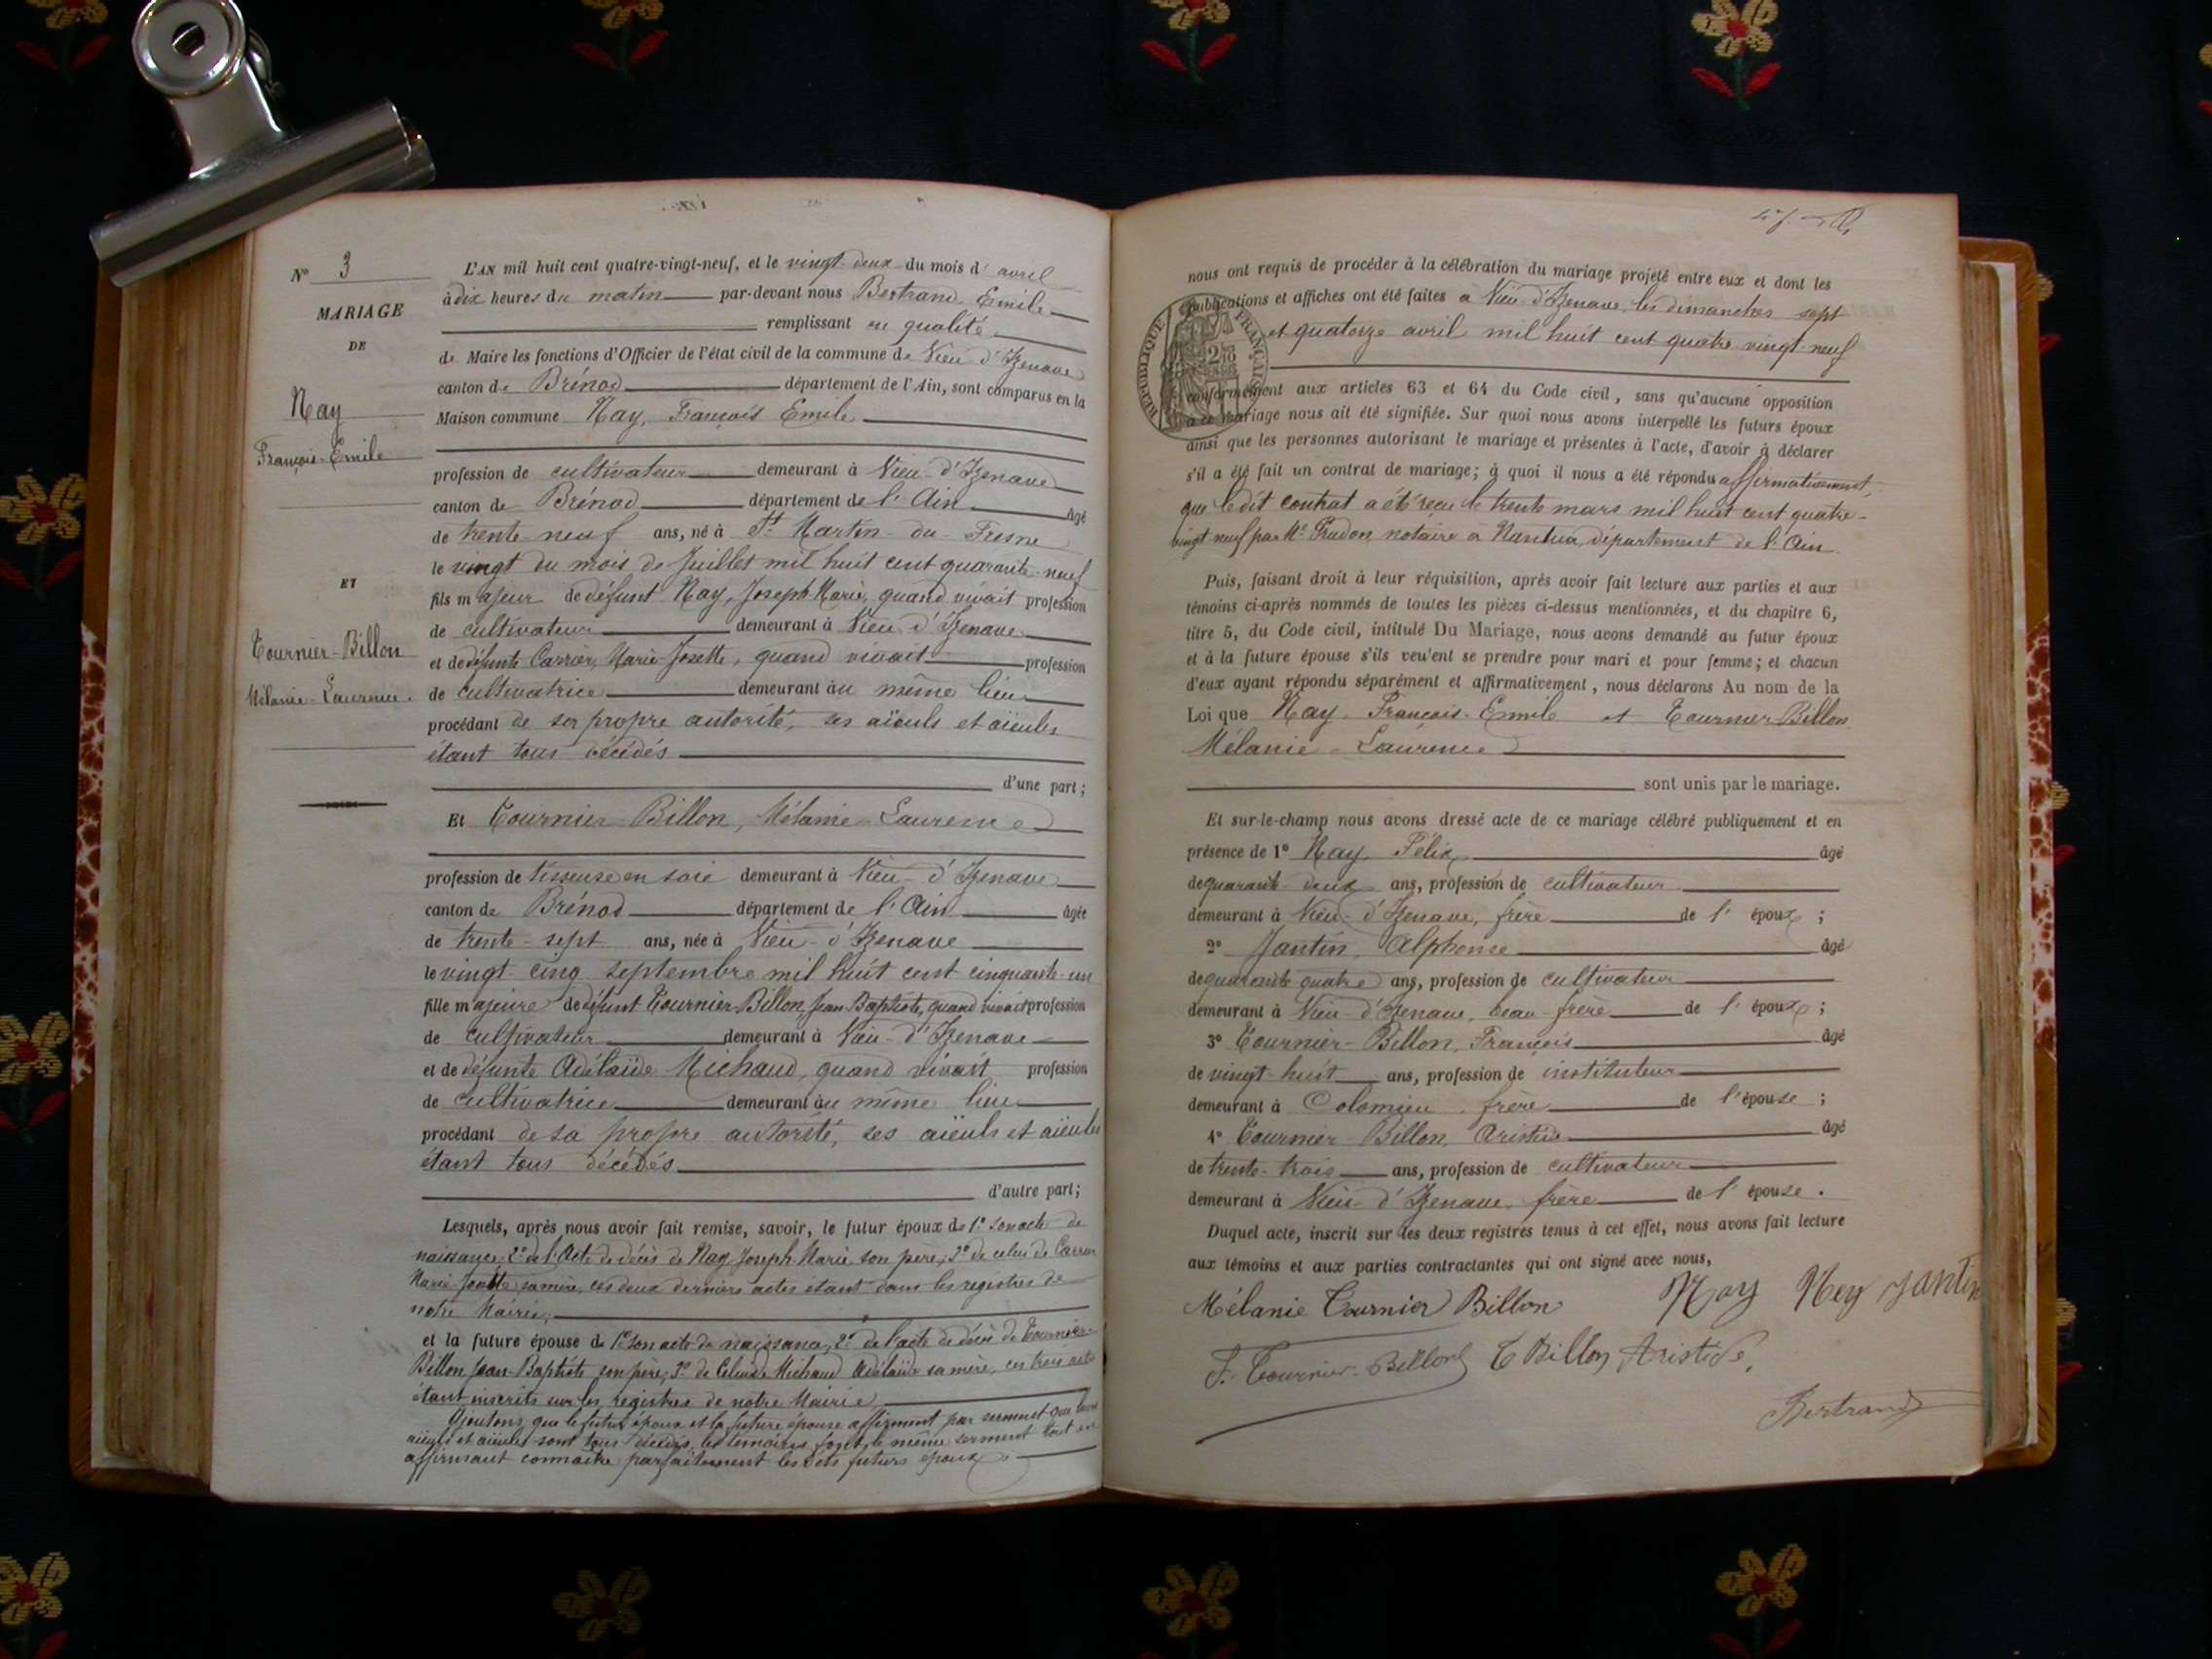 N° 3
MARIAGE
DE
Nay
François-Emile
ET
Tournier-Billon
Mélanie-Laurence.
L'AN mil huit cent quatre-vingt-neuf, et le vingt-deux du mois d'avril
à dix heures du matin par-devant nous Bertrand Emile
remplissant en qualité
de Maire les fonctions d'Officier de l'état civil de la commune de Vieu d'Izenave
canton de Brénod département de l'Ain, sont comparus en la
Maison commune Nay, François Emile
profession de cultivateur demeurant à Vieu-d'Izenave
canton de Brénod département de l'Ain âgé
de trente-neuf ans, né à St Martin-du-Fresne
le vingt du mois de Juillet mil huit cent quarante-neuf
fils majeur de défunt Nay, Joseph-Marie, quand vivait profession
de cultivateur demeurant à Vieu d'Izenave
et de défunte Carrier, Marie Josette, quand vivait profession
de cultivatrice demeurant au même lieu
procédant de sa propre autorité, ses aïeuls et aïeules
étant tous décédés
d'une part;
Et Tournier-Billon, Mélanie-Laurence
profession de tisseuse en soie demeurant à Vieu-d'Izenave
canton de Brénod département de l'Ain âgée
de trente-sept ans, née à Vieu-d'Izenave
le vingt-cinq septembre mil huit cent cinquante-un
fille majeure de défunt Tournier-Billon, Jean-Baptiste, quand vivait profession
de cultivateur demeurant à Vieu-d'Izenave
et de défunte Adélaïde Michaud, quand vivait profession
de cultivatrice demeurant au même lieu
procédant de sa propre autorité, ses aïeuls et aïeules
étant tous décédés
d'autre part;
Lesquels, après nous avoir fait remise, savoir, le futur époux de 1° son acte de
naissance; 2° de l'Acte de décès de Nay, Joseph-Marie son père; 3° de celui de Carrier
Marie-Josette sa mère, ces deux derniers actes étant dans les registres de
notre Mairie,
et la future épouse de 1° son acte de naissance, 2° de l'acte de décès de Tournier-
Billon Jean-Baptiste son père; 3° de celui de Michaud Adélaïde sa mère, ces trois actes
étant inscrits sur les registres de notre Mairie
Ajoutons que le futur époux et la future épouse affirment par serment que leurs
aïeuls et aïeules sont tous décédés, les témoins font le même serment tout en
affirmant connaître parfaitement les dits futurs époux.
nous ont requis de procéder à la célébration du mariage projeté entre eux et dont les
publications et affiches ont été faites à Vieu-d'Izenave, les dimanches sept
et quatorze avril mil huit cent quatre-vingt-neuf
RÉPUBLIQUE FRANÇAISE
conformément aux articles 63 et 64 du Code civil, sans qu'aucune opposition
à ce mariage nous ait été signifiée. Sur quoi nous avons interpellé les futurs époux
ainsi que les personnes autorisant le mariage et présentes à l'acte, d'avoir à déclarer
s'il a été fait un contrat de mariage; à quoi il nous a été répondu affirmativement,
que le dit contrat a été reçu le trente mars mil huit cent quatre-
vingt-neuf par Me Pradon, notaire à Nantua, département de l'Ain.
Puis, faisant droit à leur réquisition, après avoir fait lecture aux parties et aux
témoins ci-après nommés de toutes les pièces ci-dessus mentionnées, et du chapitre 6,
titre 5, du Code civil, intitulé Du Mariage, nous avons demandé au futur époux
et à la future épouse s'ils veulent se prendre pour mari et pour femme; et chacun
d'eux ayant répondu séparément et affirmativement, nous déclarons Au nom de la
Loi que Nay, François-Emile et Tournier-Billon
Mélanie-Laurence
sont unis par le mariage.
Et sur-le-champ nous avons dressé acte de ce mariage célébré publiquement et en
présence de 1° Nay, Félix, âgé
de quarante-deux ans, profession de cultivateur
demeurant à Vieu-d'Izenave, frère de l'époux;
2° Jantin, Alphonse âgé
de quarante quatre ans, profession de cultivateur
demeurant à Vieu-d'Izenave, beau-frère de l'époux;
3° Tournier-Billon, François âgé
de vingt-huit ans, profession de instituteur
demeurant à Colomieu, frère de l'épouse;
4° Tournier-Billon, Aristide âgé
de trente-trois ans, profession de cultivateur
demeurant à Vieu-d'Izenave, frère de l'épouse.
Duquel acte, inscrit sur les deux registres tenus à cet effet, nous avons fait lecture
aux témoins et aux parties contractantes qui ont signé avec nous,
Mélanie Tournier Billon Nay Ney Jantin
F. Tournier-Billon T Billon Aristide,
Bertrand